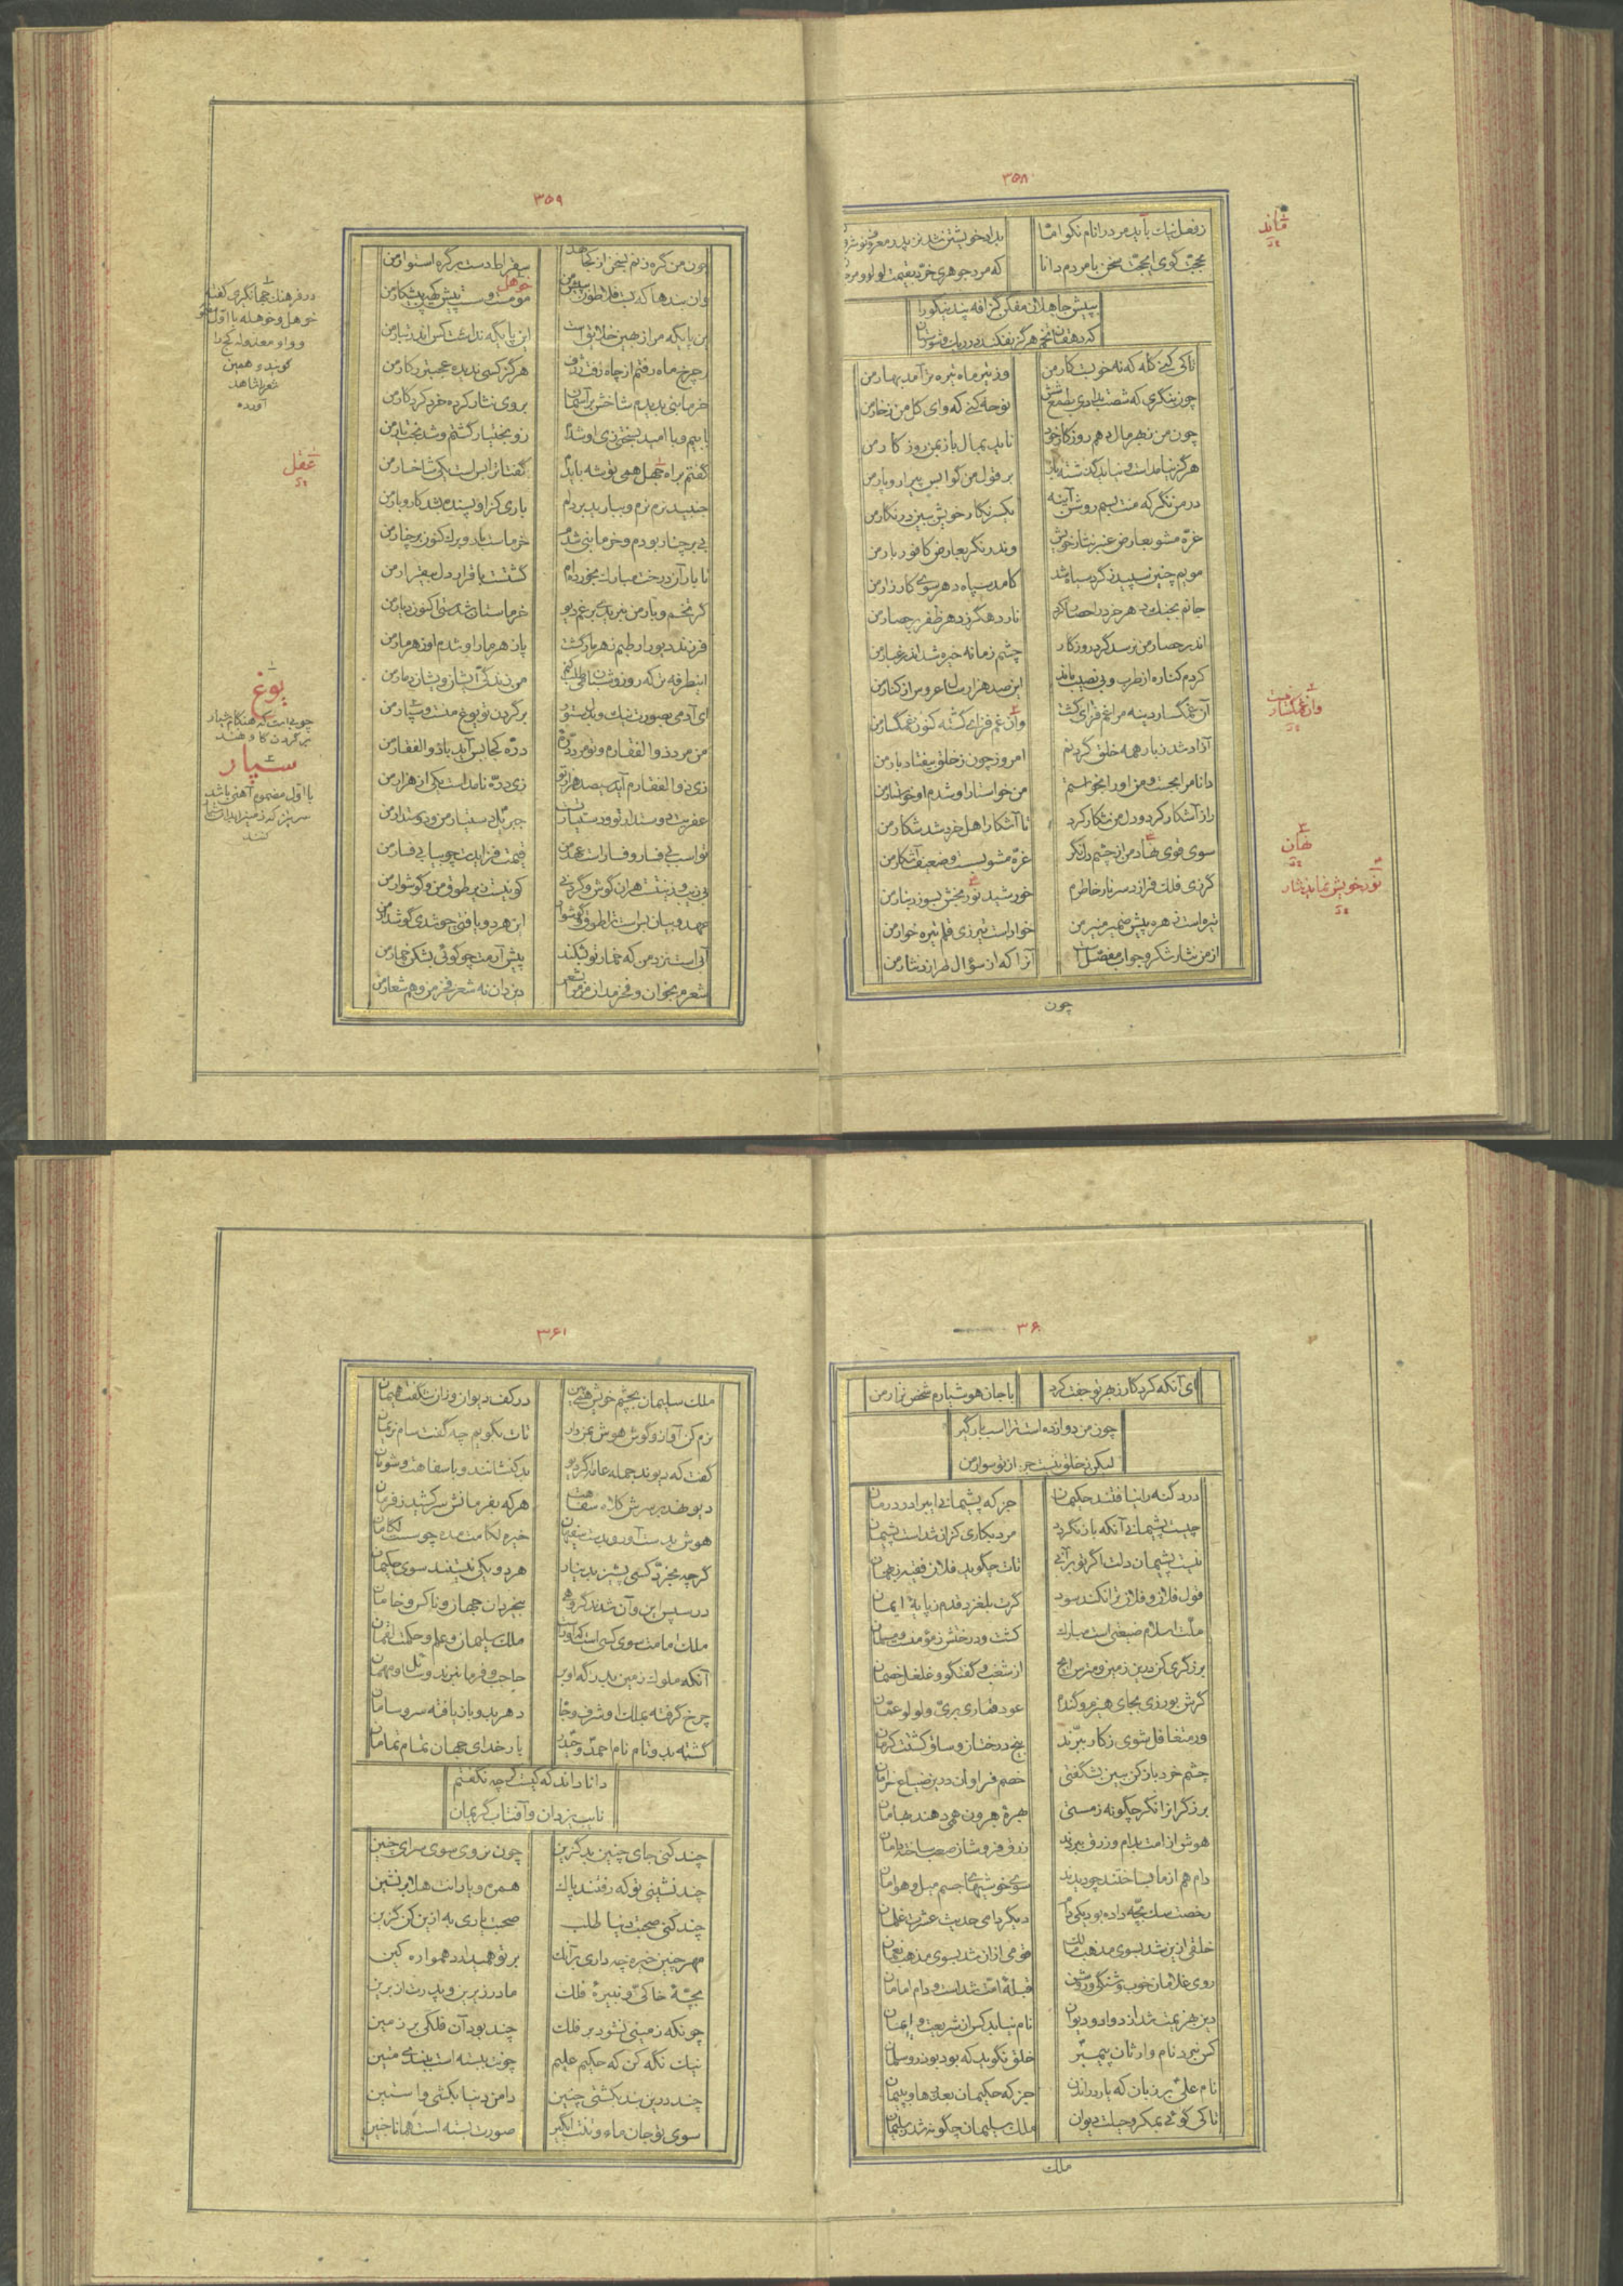 ۳۵۸
زفعل نیک باید مر درا نام نکو اما
بداد خویشتن شد نزد
بحجت کوی ای حجت سخن با مردم دانا
که مرد جوهری خرد بقیمت لولو
به پیش جاهلان مفکن گزافه پند نیکو را
که دهقان تخم هرگز نفکند در ریگ و شورستان
تا کی کنی گله که نه خوبست کار من
وز تیر ماه تیره تر آمد بهار من
چون بنگری که شصت بدادی بطمع شش
نوحه کنی که وای گل من ز خار من
چون من ز بهر مال دهم روزگار خود
ناید بمال باز بمن روزگار من
هرگز نیامدست و نیاید گذشته باز
بر قول من گوا بس پیرار و پار من
در من نگر که منت بسم روشن آینه
یکسر نگار خویش ببین در نگار من
غره مشو بعارض عنبر نثار خویش
وندر نگر بعارض کافور بار من
مویم چنین سپید ز گرد سپاه شد
کامد سپاه دهر سوی کارزار من
جانم بجنگ دهر خرد را حصار کرد
نارد هگرز دهر ظفر بر حصار من
اندر حصار من نرسد گرد روزگار
چشم زمانه خیره شد اندر غبار من
کردم کناره از طرب و بی نصیب ماند
این صد هزار ساله عروس از کنار من
آن غمگسار دینه مرا غم فزای گشت
وان غم فزای گشته کنون غمگسار من
آزاد شد ز بار همه خلق گردنم
امروز چون ز خلق بیفتاد بار من
دانا مرا بجست و من او را بخواستم
من خواستار او شدم او خواستار من
راز آشکار کرد و دل من شکار کرد
تا آشکار اهل خرد شد شکار من
سوی قوی نهاد من از چشم دل نگر
غره مشو بسست و ضعیف آشکار من
گر زی فلک فرازد سر نار خاطرم
خورشید نور بخش بسوزد بنار من
تیره است زهره پیش ضمیر منیر من
خوار است تیر زی قلم تیره خوار من
از من نثار شکر و جواب مفصل است
آنرا که از سؤال طرازد نثار من
چون
ماند
وان غمگسار
نهان
نور خویش نماید نثار
۳۵۹
چون من گره زنم بسخن از کجا هد
سقراط دست بر گره استوار من
وان بندها که بست فلاطون پیش بین
خوهل
موم است و سست پیش کهین پیشکار من
این پایگه مرا ز بهین خلایق است
این پایگه نداشت کس اندر تبار من
بر چرخ ماه رفتم از چاه زفت ژرف
هرگز کسی ندید عجب تر ز کار من
خرما بنی بدیدم شاخش بر آسمان
بر وی نثار کرده خرد کردگار من
با بیم و با امید بسختی زی او شدم
زو بختیار گشتم و شد بخت یار من
گفتم براه جهل همی توشه بایدم
گفتا ترا بس است یکی شاخسار من
جنبید نرم نرم و ببارید بر دلم
باری کز او پسند شد کار و بار من
بی بر چنار بودم و خرما بنی شدم
خرماست بار و برگ کنون بر چنار من
تا بار آن درخت مبارک بخورده ام
گشتست با قرار دل بیقرار من
گر تخم و بار من نبریدی برغم دیو
خرماستان شدستی اکنون دیار من
فرزند دیو را رطبم زهر مار گشت
پازهر مار او شدم او زهر مار من
این طرفه تر که روز و شبان می طلب کنم
من زندگی ایشان و ایشان دمار من
ای آدمی بصورت نیک و بدل ستور
بر گردن تو یوغ منست و سپار من
من مرد ذوالفقارم و تو مرد دره ای
دره کجا بس آید با ذوالفقار من
زی ذوالفقارم آید سیصد هزار تو
زی دره نامدست یکی از هزار من
عفریت دوستدار تو و دستیار تست
جبریل دستیار من و دوستدار من
تو اسب بی فسار و فسارست عهد من
قیمت فزایدت چو بیابی فسار من
بی زیب و زینت است هر آن گوش و گردنی
کو نیست زیر طوق من و گوشوار من
عهد و بیان بس است ترا طوق و گوشوار
این هر دو یافتی چو شدی گوشدار من
آبی است نزد من که خمار تو بشکند
پیش آرمت چو گوئی بشکن خمار من
شعرم بخوان و فخر مدان مر مرا بشعر
دین دان نه شعر فخر من و هم شعار من
در فرهنگ جهانگیری گفته
خوهل و خوهله با اول مفتوح
و واو معدوله کج را
گویند و همین
شعر را شاهد
آورده
عقل
یوغ
چوبی است که هنگام شیار
بر گردن گاو نهند
سپار
با اول مضموم آهنی باشد
سر تیز که زمین را بدان شیار
کنند
۳۶۰
ای آنکه کردگار ز بهر تو جفت کرد
با جان هوشیارم شخص نزار من
چون من دوازده است ترا اسب بارگیر
لیکن ز خلق نیست جز از تو سوار من
درد گنه را نیافتند حکیمان
جز که پشیمانی ای برادر درمان
چیست پشیمانی آنکه باز نگردد
مرد بکاری کزان شدست پشیمان
نیست پشیمان دلت اگر تو بر آنی
تات چگوید فلان فقیه ز بهمان
قول فلان و فلان ترا نکند سود
گرت بلغزد قدم ز پایه ایمان
ملت اسلام ضیعتی است مبارک
کشت و درختش ز مؤمنست و مسلمان
برزگری کن درین زمین و مترس ایچ
از شغب و گفتگو و غلغل خصمان
گرش بورزی بجای هیزم و گندم
عود قماری بری و لولو عمان
ور متغافل شوی ز کار ببرند
بیخ درختان و ساق کشتت کرمان
چشم خرد باز کن ببین بشگفتی
خصم فراوان درین ضیاع خرامان
برزگرانرا نگر چگونه ز مستی
بهره هرون همی دهند بهامان
هوش از امت بدام و زرق ببردند
زرق فروشان صعب ساخته دامان
دام هم از ما بساختند چو دیدند
سوی خوشیهای جسم میل و هوامان
رخصت سیک پخته داده بودیکی دام
دیگر دامی حدیث عشرت غلمان
خلقی ازین شد بسوی مذهب مالک
قومی از آن شد بسوی مذهب نعمان
روی غلامان خوب و شنگ و روشن
قبله امت شدست و دام امامان
دین هزیمت شد از دوادو دیوان
نام نیابد کس از شریعت و ایمان
کس نبرد نام وارثان پیمبر
خلق نگوید که بود بوذر و سلمان
نام علی بر زبان که یارد راندن
جز که حکیمان بعقدها و بپیمان
تا کی گوئی بمکر و حیلت دیوان
ملک سلیمان چگونه شد ز سلیمان
ملک
۳۶۱
ملک سلیمان بچشم خویش همی بین
در کف دیوان وزان شگفت همیمان
نرم کن آواز و گوش هوش بمن دار
تات بگویم چه گفت سام نریمان
گفت که دیوند جمله عامه اگر دیو
بد کنشانند و با سفاهت و شومان
دیو نهد بر سرش کلاه سفاهت
هر که بفرمانش سر کشید ز فرمان
هوش بدست آور و بدست سفیهان
خیره لگامت مده چو سست لگامان
گرچه بمجرد کسی پشیز بدینار
هر دو یکی نیستند سوی حکیمان
در سپس این و آن شدند گروهی
بیخردان جهان و ناکس و خامان
ملک امامت سوی کسی است که او راست
ملک سلیمان و علم و حکمت لقمان
آنکه ملوک زمین بدرگه اویند
حاجب و فرمانبرند و سائل و مهمان
چرخ گرفته بملک او شرف و جاه
دهر بدو باز یافته سر و سامان
گشته بدو نام نام احمد و حیدر
یار خدای جهان تمام تمامان
دانا داند که کیست گر چه نگفتم
نایب یزدان و آفتاب کریمان
چند کنی جای چنین بد گزین
چون نروی سوی سرای چنین
چند نشینی تو که رفتند پاک
همره و یارانت هلا بر نشین
چند کنی صحبت دنیا طلب
صحبت یاری به ازین کن گزین
مهر چنین خیره چه داری بر آنک
بر تو همی دارد همواره کین
بچه خاکی و نبیره فلک
مادر زیرین و پدرت از برین
چونکه زمینی نشود بر فلک
چند بود آن فلکی بر زمین
نیک نگه کن که حکیم علیم
چونت ببسته است ببندی متین
چند درین بند بکشتی چنین
دامن دنیا بکشی و آستین
سوی تو جان ماه و تنت آبگیر
صورت بسته است همانا چنین